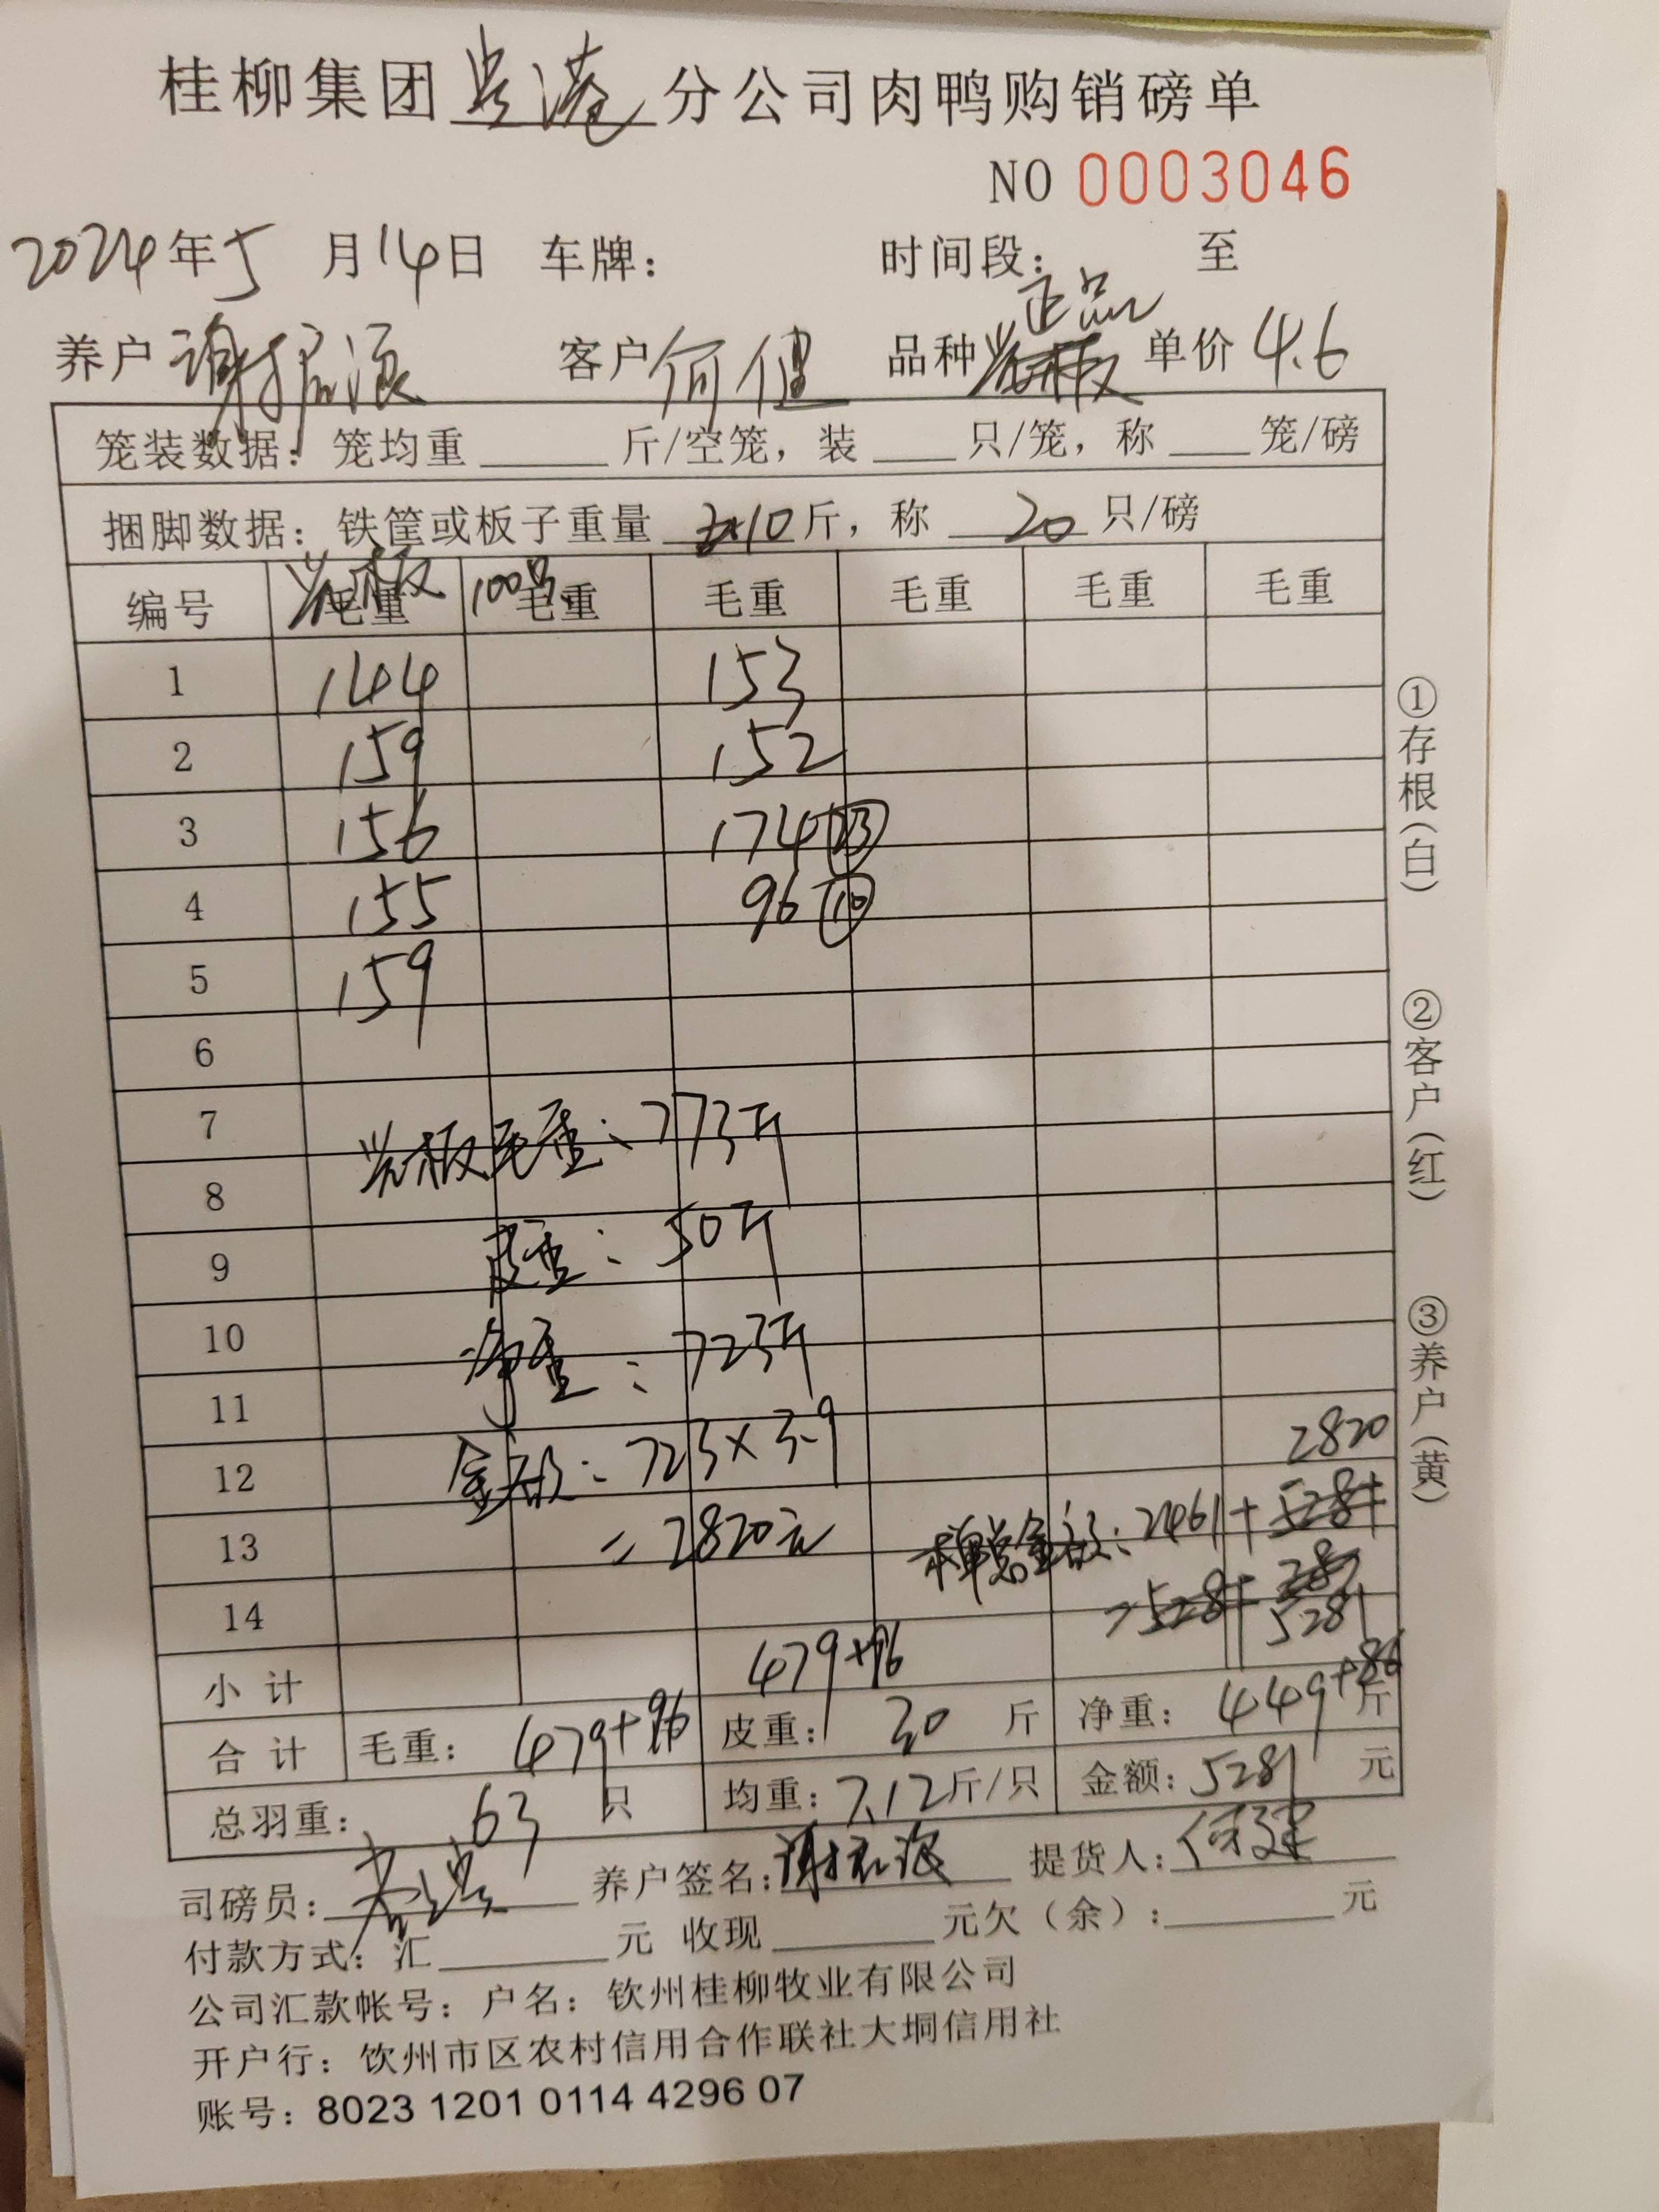 桂柳集团贵港分公司肉鸭购销磅单
NO 0003046
2024年5月14日 车牌: 时间段: 至
正品
养户 谢振源 客户 何健 品种 单价 4.6
笼装数据: 笼均重 斤/空笼, 装 只/笼, 称 笼/磅
捆脚数据: 铁筐或板子重量 10斤, 称 20 只/磅
编号 毛重 100只 毛重 毛重 毛重 毛重 毛重
1 144 153
2 159 152
3 156 174 23
4 155 96 10
5 159
6
7 板毛重: 773斤
8
9 皮重: 50斤
10 净重: 723斤
11
12 金额: 723×3.9 2820
13 =2820元 本单总金额: 2461+
14 5281
小计 479+96
合计 毛重: 479+96 皮重: 30 斤 净重: 449+86 斤
总羽重: 63 只 均重: 7.12斤/只 金额: 5281 元
司磅员: 养户签名: 谢振源 提货人: 何健
付款方式: 汇 元 收现 元欠(余): 元
公司汇款帐号: 户名: 钦州桂柳牧业有限公司
开户行: 钦州市区农村信用合作联社大垌信用社
账号: 8023 1201 0114 4296 07
①存根(白)
②客户(红)
③养户(黄)